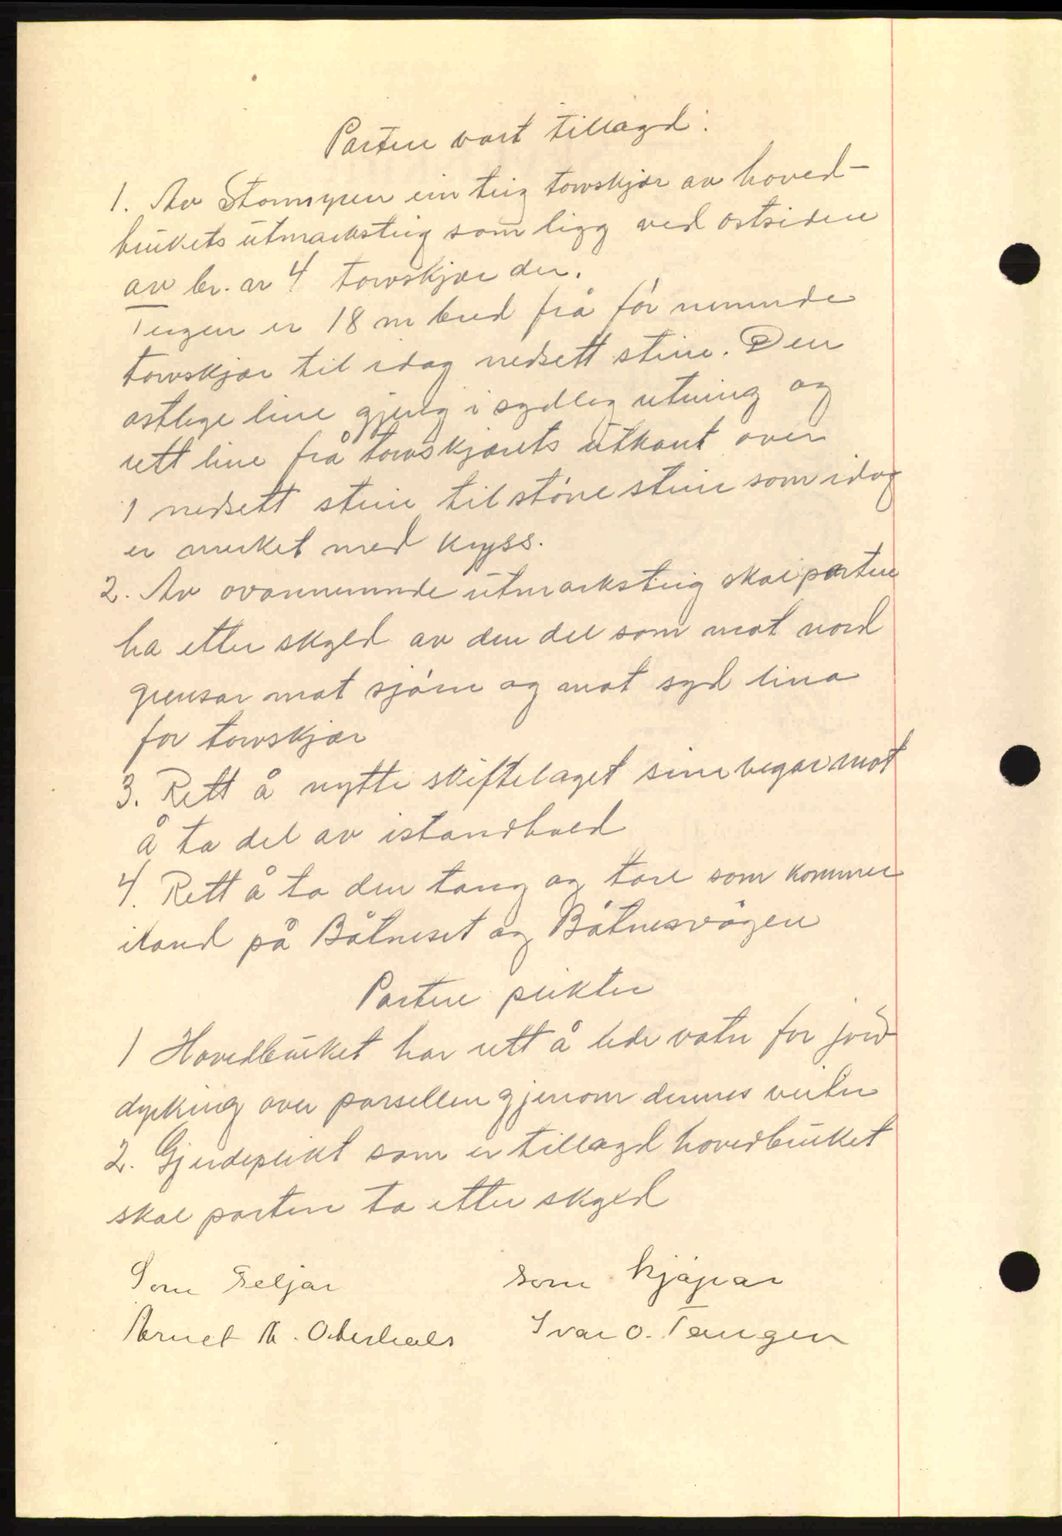 Parten vart tillagd:
1. Av Stormyren ein teig torvskjær av hoved-
brukets utmarksteig som ligg ved ostsiden
av br. nr 4 torvskjær der.
Teigen er 18 m bred frå før nemnde
torvskjær til idag nedsett stein. Den
ostlege line gjeng i sydleg retning og
rett line frå torvskjærets utkant over
1 nedsett stein til större stein som idag
er merket med kryss.
2. Av ovannemnde utmarksteig skal parten
ha etter skyld av den del som mot nord
grensar mot sjöen og mot syd lina
for torvskjær
3. Rett å nytte skiftelaget sine vegar mot
å ta del av istandhold
4. Rett å ta den tang og tare som kommer
iland på Båtneset og Båtnesvågen
Partens plikter
1 Hovedbruket har rett å lede vatn for jord
dyrking over parsellen gjenom dennes veiter
2. Gjerdeplikt som er tillagd hovedbruket
skal parten ta etter skyld
Som Seljar som kjøpar
Arnet A. Ivar O. Tangen